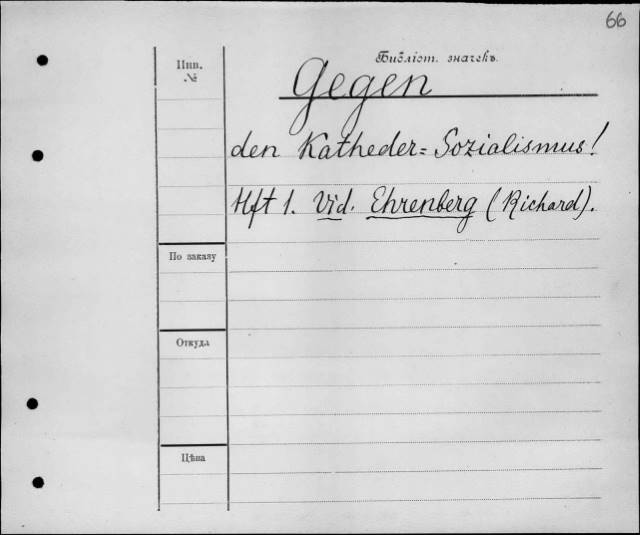 66
Инв.
№
Библіот. значекъ.
Gegen
den Katheder=Sozialismus!
Hft 1. Vid. Ehrenberg (Richard).
По заказу
Откуда
Цѣна